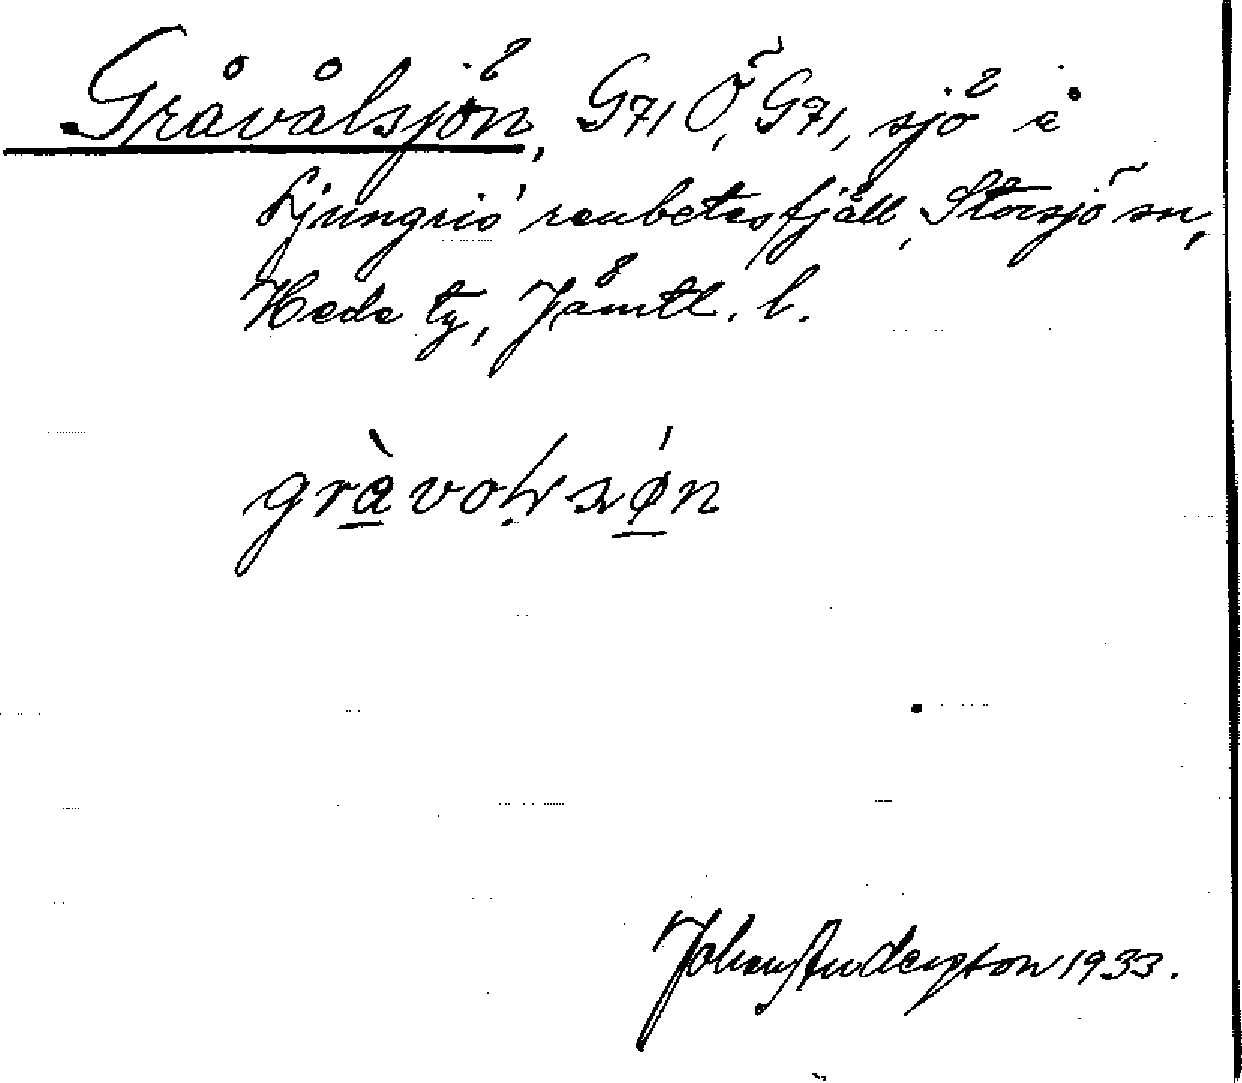 Gråvålsjön, G71 Ö, G71, sjö i
Ljungris renbetesfjäll, Storsjö sn,
Hede tg, Jämtl. l.
gràvoḷsǿn
Johan Anderzson 1933.